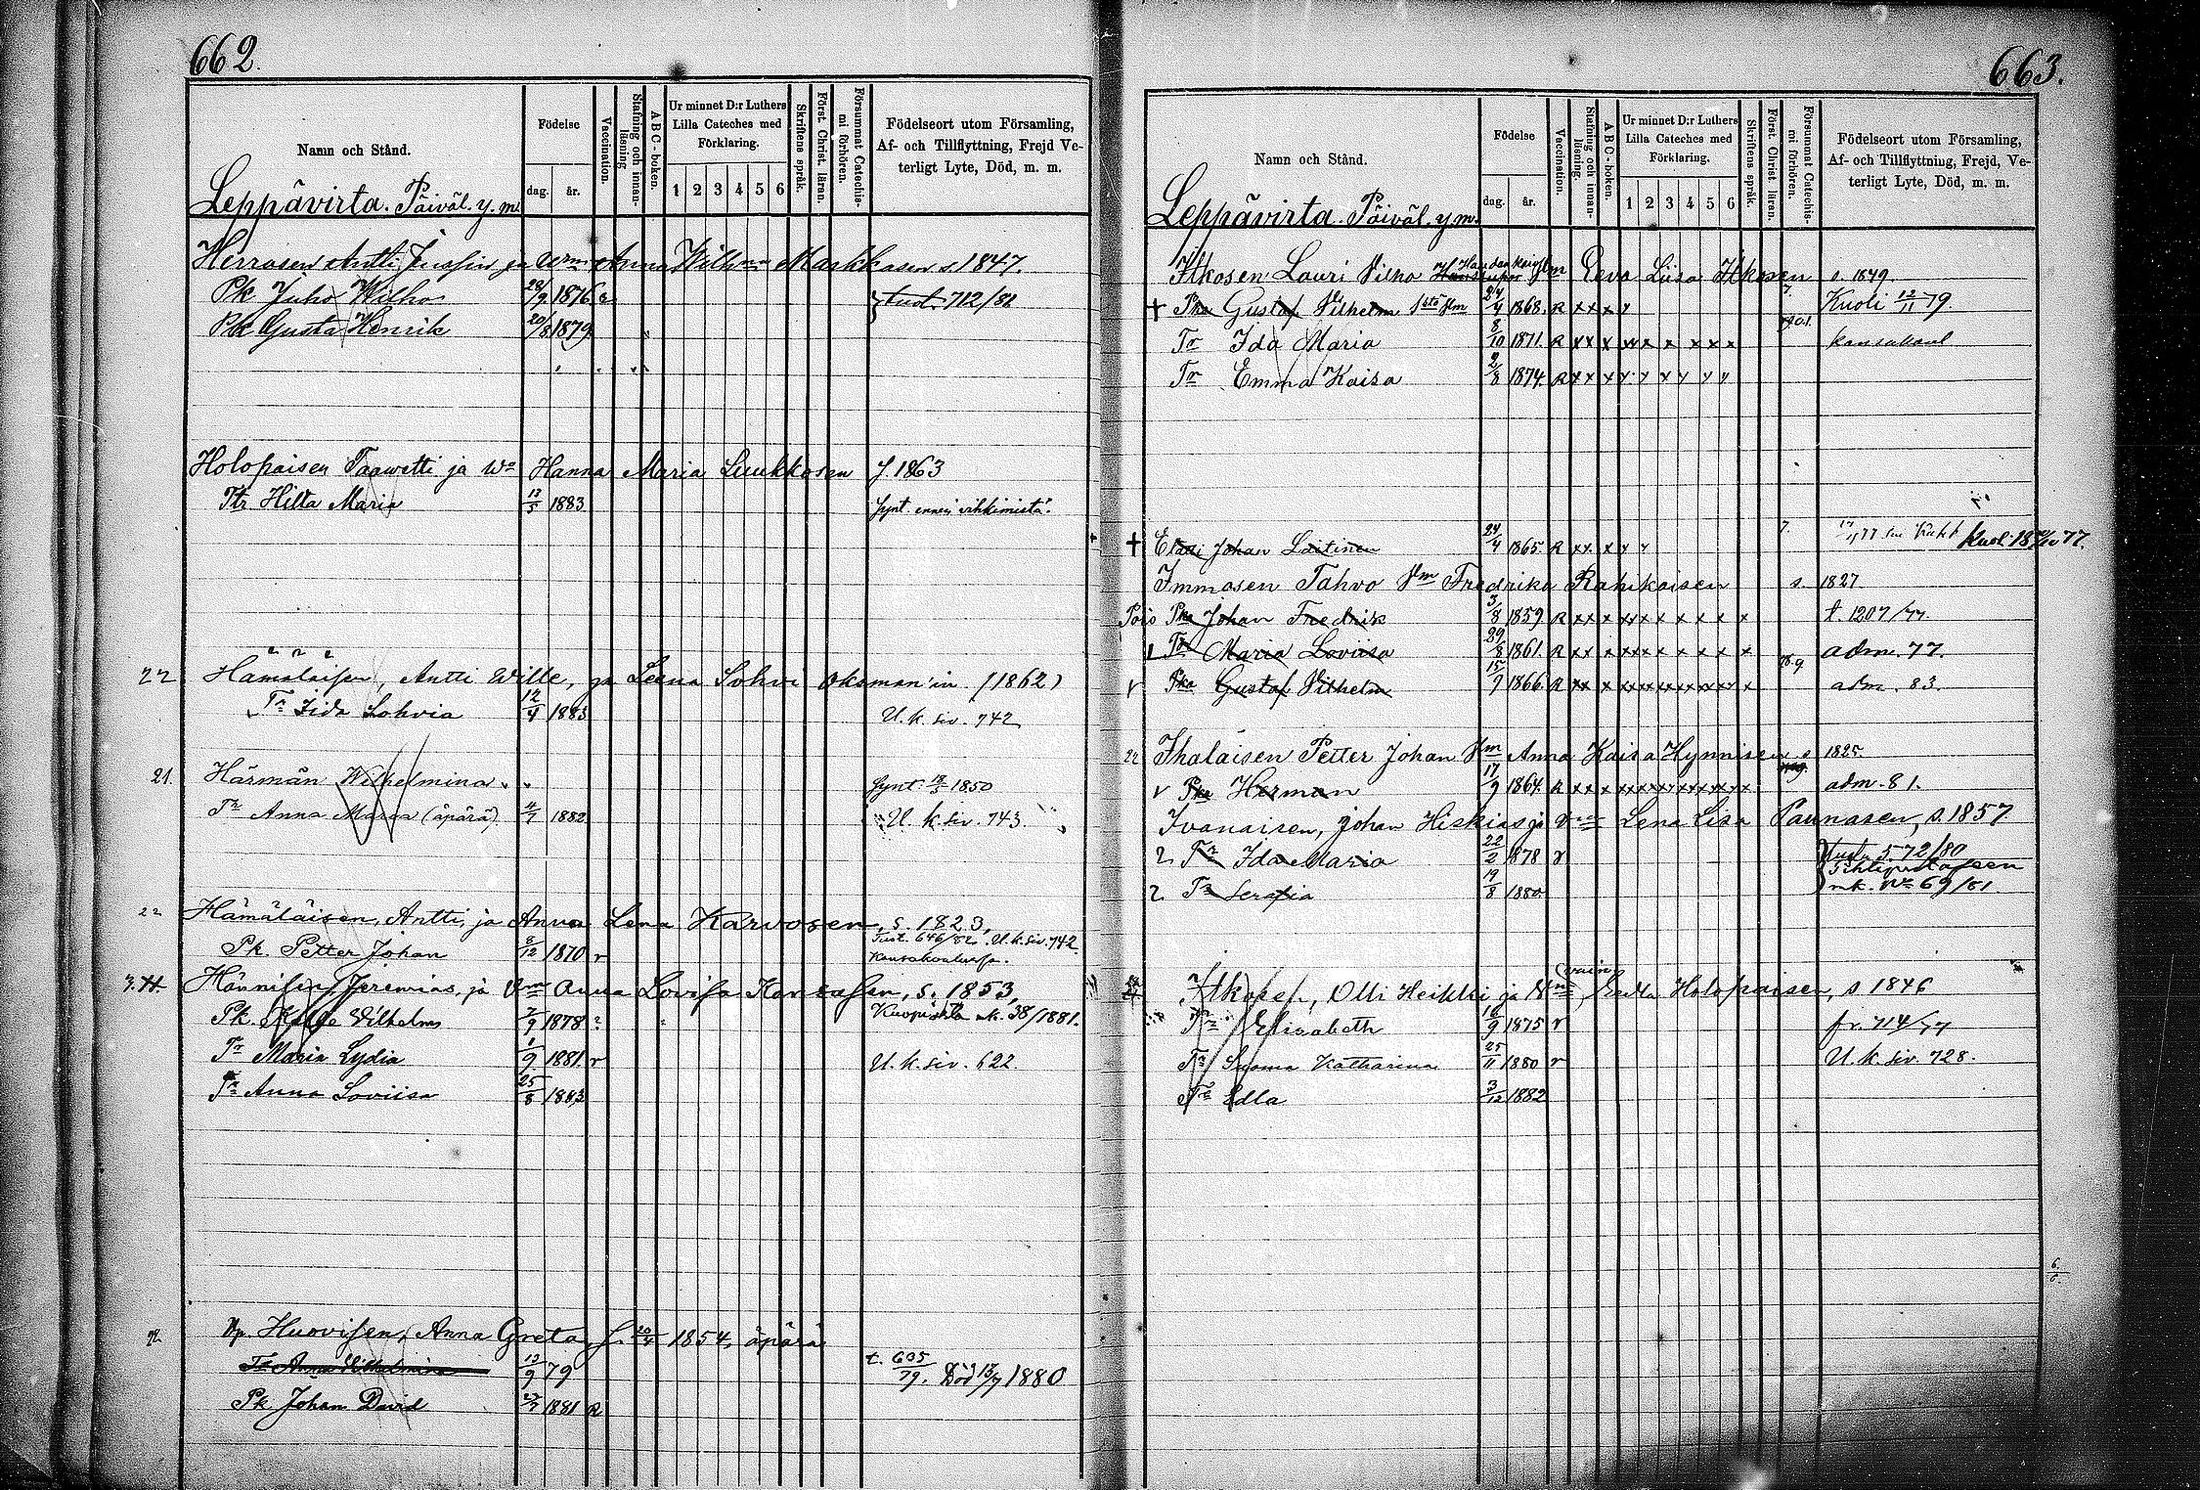 662.
Namn och Stånd.
Födelse
dag. år.
Vaccination.
Stafning och innanläsning
ABC-boken.
Ur minnet D:r Luthers
Lilla Cateches med
Förklaring.
1 2 3 4 5 6
Skriftens språk.
Först. Christ. läran.
Försummat Catechismi förhören.
Födelseort utom Församling,
Af- och Tillflyttning, Frejd Ve-
terligt Lyte, Död, m. m.
Leppävirta. Päiväl. y. m.
Herrosen Antti Jussin ja Anna Wilh Markkasen s. 1847.
Pk Juho Wilho 28/9 1876 712/82
Pk Gusta Henrik 20/8 1879
Holopaisen Taawetti ja Wo Hanna Maria Luukkosen f. 1863
Ttr Hilta Maria 13/5 1883 Synt. ennen vihkimistä.
22 Hämäläisen, Antti Wille, ja Leena Sohvi Oksman'in (1862)
Tr Iida Sohvia 12/4 1883 U. k. siv. 742
21. Härmän Wilhelmina Synt. 1850
Tr Anna Maria (äpärä) 4/7 1882 U. k. siv. 743.
22 Hämäläisen, Antti, ja Anna Lena Karvosen, s. 1823,
Pk. Petter Johan 8/12 1870 r Tust. 646/82. U. k. siv. 742
Hännisen, Jeremias, ja Vm Anna Lovisa s. 1853,
Pk. Kalle Vilhelm 7/9 1878 Kuopiosta mk. 38/1881.
Tr Maria Lydia 1/9 1881 r U. k. siv. 622.
Tr Anna Loviisa 25/8 1883
Huovisen, Anna Greta, f. 20/4 1854, äpärä
Tr Anna Vilhelmina 13/9 79 t. 605/79. Död 1880
Pk Johan David 1881 R
663.
Namn och Stånd.
Födelse
dag. år.
Vaccination.
Stafning och innanläsning.
ABC-boken.
Ur minnet D:r Luthers
Lilla Cateches med
Förklaring.
1 2 3 4 5 6
Skriftens språk.
Först Christ läran.
Försummat Catechismi förhören.
Födelseort utom Församling,
Af- och Tillflyttning, Frejd, Ve-
terligt Lyte, Död, m. m.
Leppävirta. Päiväl. y. m.
Itkosen Lauri Vilho Eeva Liisa Itkosen s. 1849.
+ Pka Gustaf Vilhelm 1868. R x x x y Kuoli 12/11 79.
Tr Ida Maria 8/10 1871. R x x x x x x x x x kansakoul
Tr Emma Kaisa 2/8 1874. R x x x y y x y y y
+ Johan Laitinen 24/4 1865. R x x x y y 7.
Immosen Tahvo Fredrika Rahikaisen s. 1827
Pois Pka Johan Fredrik 3/8 1859 R x x x x x x x x x x t. 1207/77.
Tr Maria Loviisa 29/8 1861. R x x x x x x x x x x adm. 77.
r Pka Gustaf Vilhelm 15/9 1866. R x x x x x x x x x x adm. 83.
22 Ihalaisen Petter Johan Vm Anna Kaisa Hynnisen s. 1825.
v Pka Herman 17/9 1864. R x x x x x x x x x x adm. 81.
Ivanaisen, Johan Hiskias ja Lena Lisa Paunasen, s. 1857
2 Tr Ida Maria 22/2 1878 r 572/80
2 Tr Serafia 19/8 1880. mk. No 69/81
Itkosen, Olli Heikki ja (vain) Eulla Holopaisen, s 1846
Tr Elisabeth 16/9 1875 r fr. 714/77
Tr Suoma Katharina 25/11 1880 r U. k. siv. 728.
Tr Edla 3/12 1882